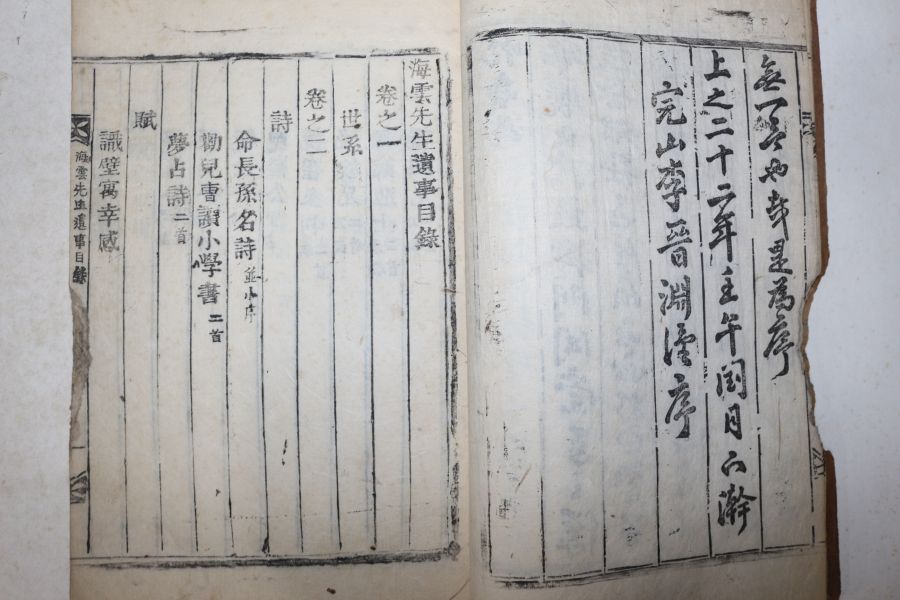 也哉是爲序
上之二十二年壬午閏月下澣
完山李晉淵謹序
海雲先生遺事目錄
卷之一
世系
卷之二
詩
命長孫名詩 並小序
勸兒曹讀小學書 二首
夢占詩 二首
賦
識壁寓幸感
海雲先生遺事目錄